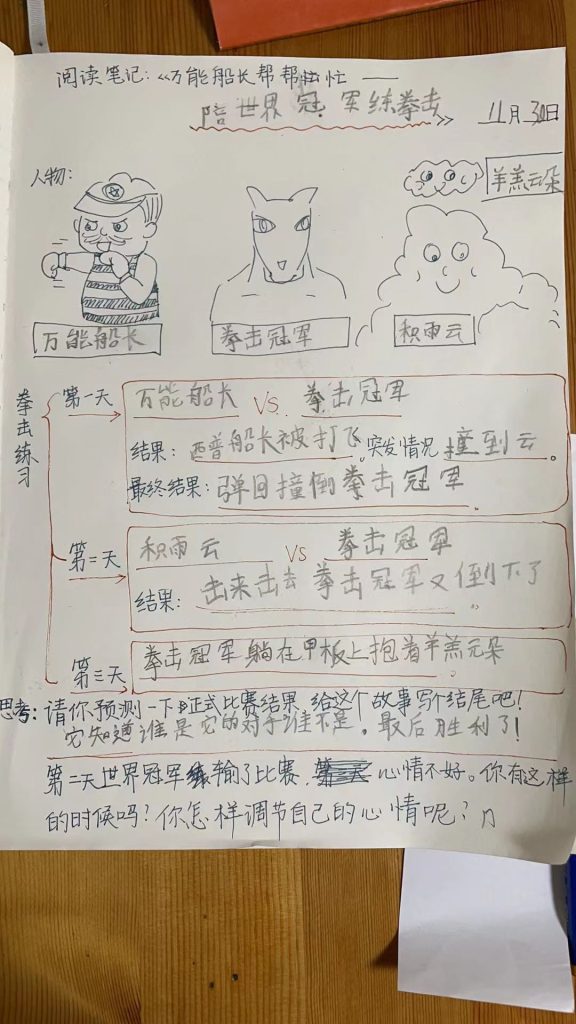 阅读笔记:《万能船长帮帮忙 ——
陪世界冠军练拳击》 11月30日
人物:
羊羔云朵
万能船长 拳击冠军 积雨云
拳击练习
第一天 万能船长 VS 拳击冠军
结果: 西普船长被打飞。突发情况 撞到云。
最终结果: 弹回撞倒拳击冠军。
第二天 积雨云 VS 拳击冠军
结果: 击来击去 拳击冠军又倒下了。
第三天 拳击冠军躺在甲板上抱着羊羔云朵
思考: 请你预测一下正式比赛结果, 给这个故事写个结尾吧!
它知道谁是它的对手谁不是。最后胜利了!
第二天世界冠军输了比赛, 心情不好。你有这样
的时候吗? 你怎样调节自己的心情呢?